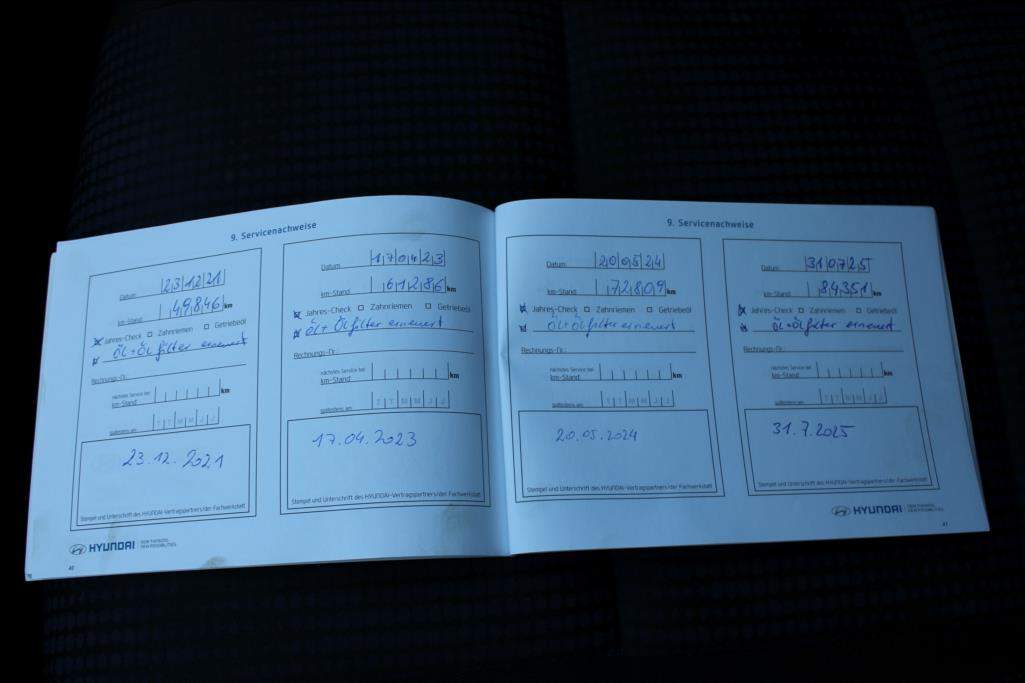 9. Servicenachweise
Datum 23 12 21
km-Stand: 49846 km
Jahres-Check Zahnriemen Getriebeöl
Öl + Ölfilter erneuert
Rechnungs-Nr.:
nächstes Service bei
km-Stand: km
spätestens am: T T M M J J
23.12.2021
Stempel und Unterschrift des HYUNDAI-Vertragspartners/der Fachwerkstatt
Datum 17 04 23
km-Stand: 61286 km
Jahres-Check Zahnriemen Getriebeöl
Öl + Ölfilter erneuert
Rechnungs-Nr.:
nächstes Service bei
km-Stand: km
spätestens am: T T M M J J
17.04.2023
Stempel und Unterschrift des HYUNDAI-Vertragspartners/der Fachwerkstatt
HYUNDAI NEW THINKING. NEW POSSIBILITIES.
40
9. Servicenachweise
Datum: 20 05 24
km-Stand: 72809 km
Jahres-Check Zahnriemen Getriebeöl
Öl + Ölfilter erneuert
Rechnungs-Nr.:
nächstes Service bei
km-Stand: km
spätestens am: T T M M J J
20.05.2024
Stempel und Unterschrift des HYUNDAI-Vertragspartners/der Fachwerkstatt
Datum: 31 07 25
km-Stand: 84351 km
Jahres-Check Zahnriemen Getriebeöl
Öl + Ölfilter erneuert
Rechnungs-Nr.:
nächstes Service bei
km-Stand: km
spätestens am: T T M M J J
31.7.2025
Stempel und Unterschrift des HYUNDAI-Vertragspartners/der Fachwerkstatt
HYUNDAI NEW THINKING. NEW POSSIBILITIES.
41